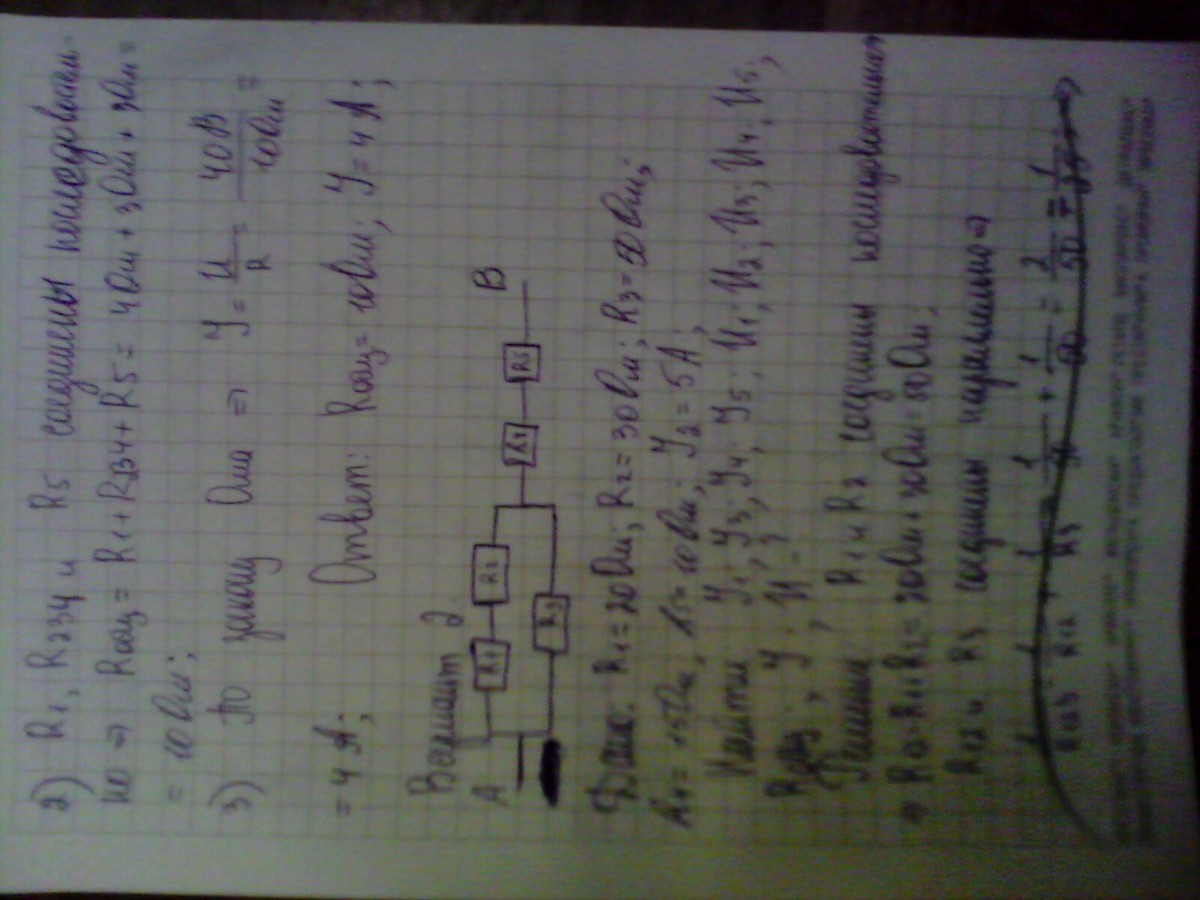 2) R1, R234 и R5 соединены последователь-
но ⇒ Rобщ = R1 + R234 + R5 = 4 Ом + 3 Ом + 3 Ом =
= 10 Ом;
3) По закону Ома ⇒ У = U/R = 40В/10Ом =
= 4 А; Ответ: Rобщ = 10 Ом; У = 4 А;
Вариант 2.
A R1 R2 R3 R4 R5 B
Дано: R1 = 20 Ом; R2 = 30 Ом; R3 = 50 Ом;
R4 = 15 Ом, R5 = 10 Ом; У2 = 5 А;
Найти У1; У3; У4; У5; U1; U2; U3; U4; U5;
Rобщ; У; U - ?
Решение: R1 и R2 соединены последовательно
⇒ R12 = R1 + R2 = 20 Ом + 30 Ом = 50 Ом;
R12 и R3 соединены параллельно ⇒
1/R123 = 1/R12 + 1/R3 = 1/50 + 1/50 = 2/50 =